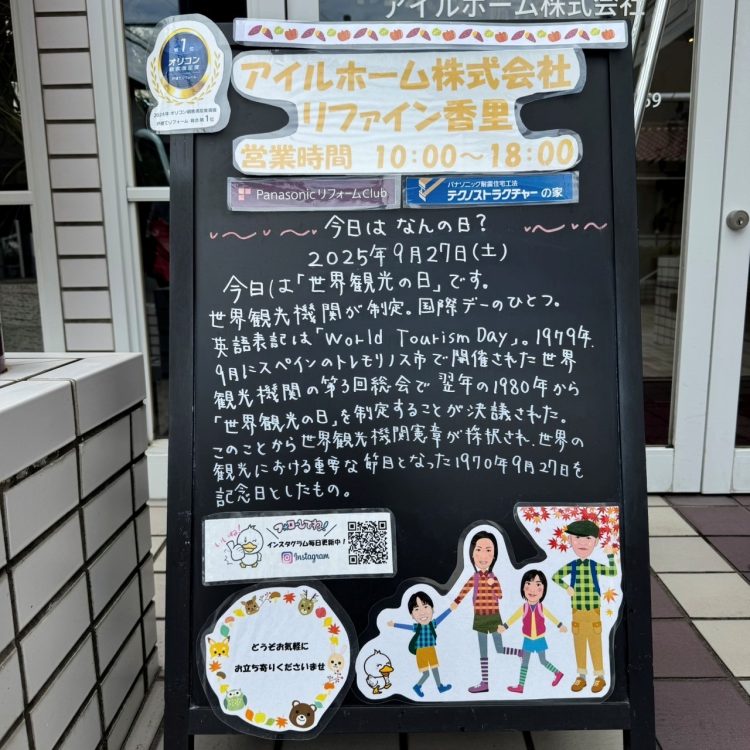 アイルホーム株式会社
第1位
オリコン
顧客満足度
2024年 オリコン顧客満足度調査
戸建てリフォーム 総合第1位
アイルホーム株式会社
リファイン香里
営業時間 10:00～18:00
59
Panasonic リフォームClub
パナソニック耐震住宅工法
テクノストラクチャーの家
今日は なんの日?
2025年9月27日(土)
今日は「世界観光の日」です。
世界観光機関が制定。国際デーのひとつ。
英語表記は「World Tourism Day」。1979年
9月にスペインのトレモリノス市で開催された世界
観光機関の第3回総会で 翌年の1980年から
「世界観光の日」を制定することが決議された。
このことから世界観光機関憲章が採択され、世界の
観光における重要な節目となった1970年9月27日を
記念日としたもの。
いいね!
フォローしてね!
インスタグラム毎日更新中!
Instagram
どうぞお気軽に
お立ち寄りくださいませ